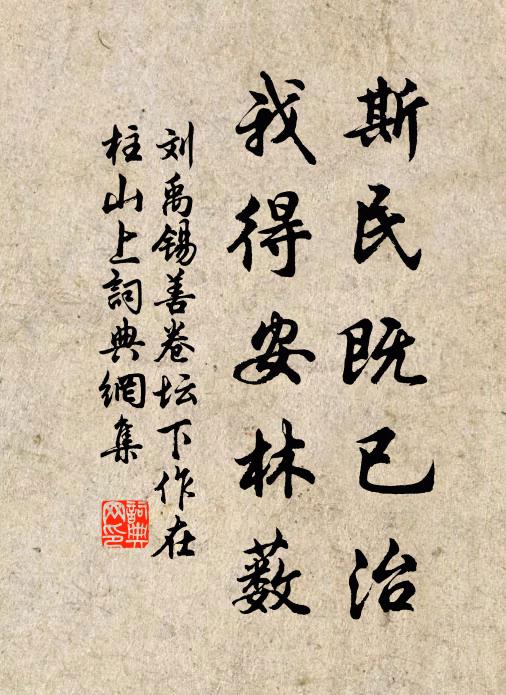 斯民既已治
我得安林薮
刘禹锡善卷坛下作在
柱山上詞典網集
詞典
网印